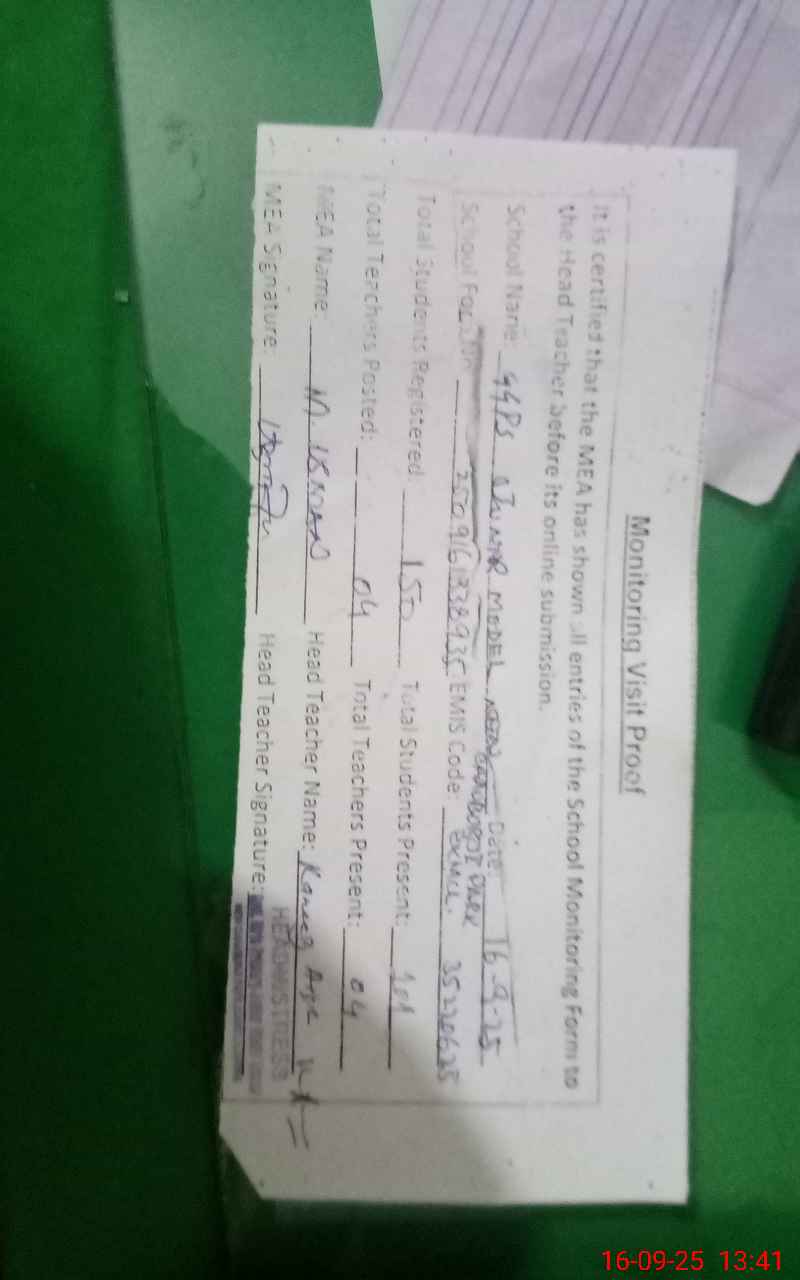 Monitoring Visit Proof
It is certified that the MEA has shown all entries of the School Monitoring Form to
the Head Teacher before its online submission.
School Name: GGPS JUNIOR MODEL Date: 16-9-25
School EMIS Code: 352206
Total Students Registered: 150 Total Students Present: 101
Total Teachers Posted: 04 Total Teachers Present: 04
MEA Name: M. USMAN Head Teacher Name:
HEADMISTRESS
MEA Signature: Head Teacher Signature:
16-09-25 13:41